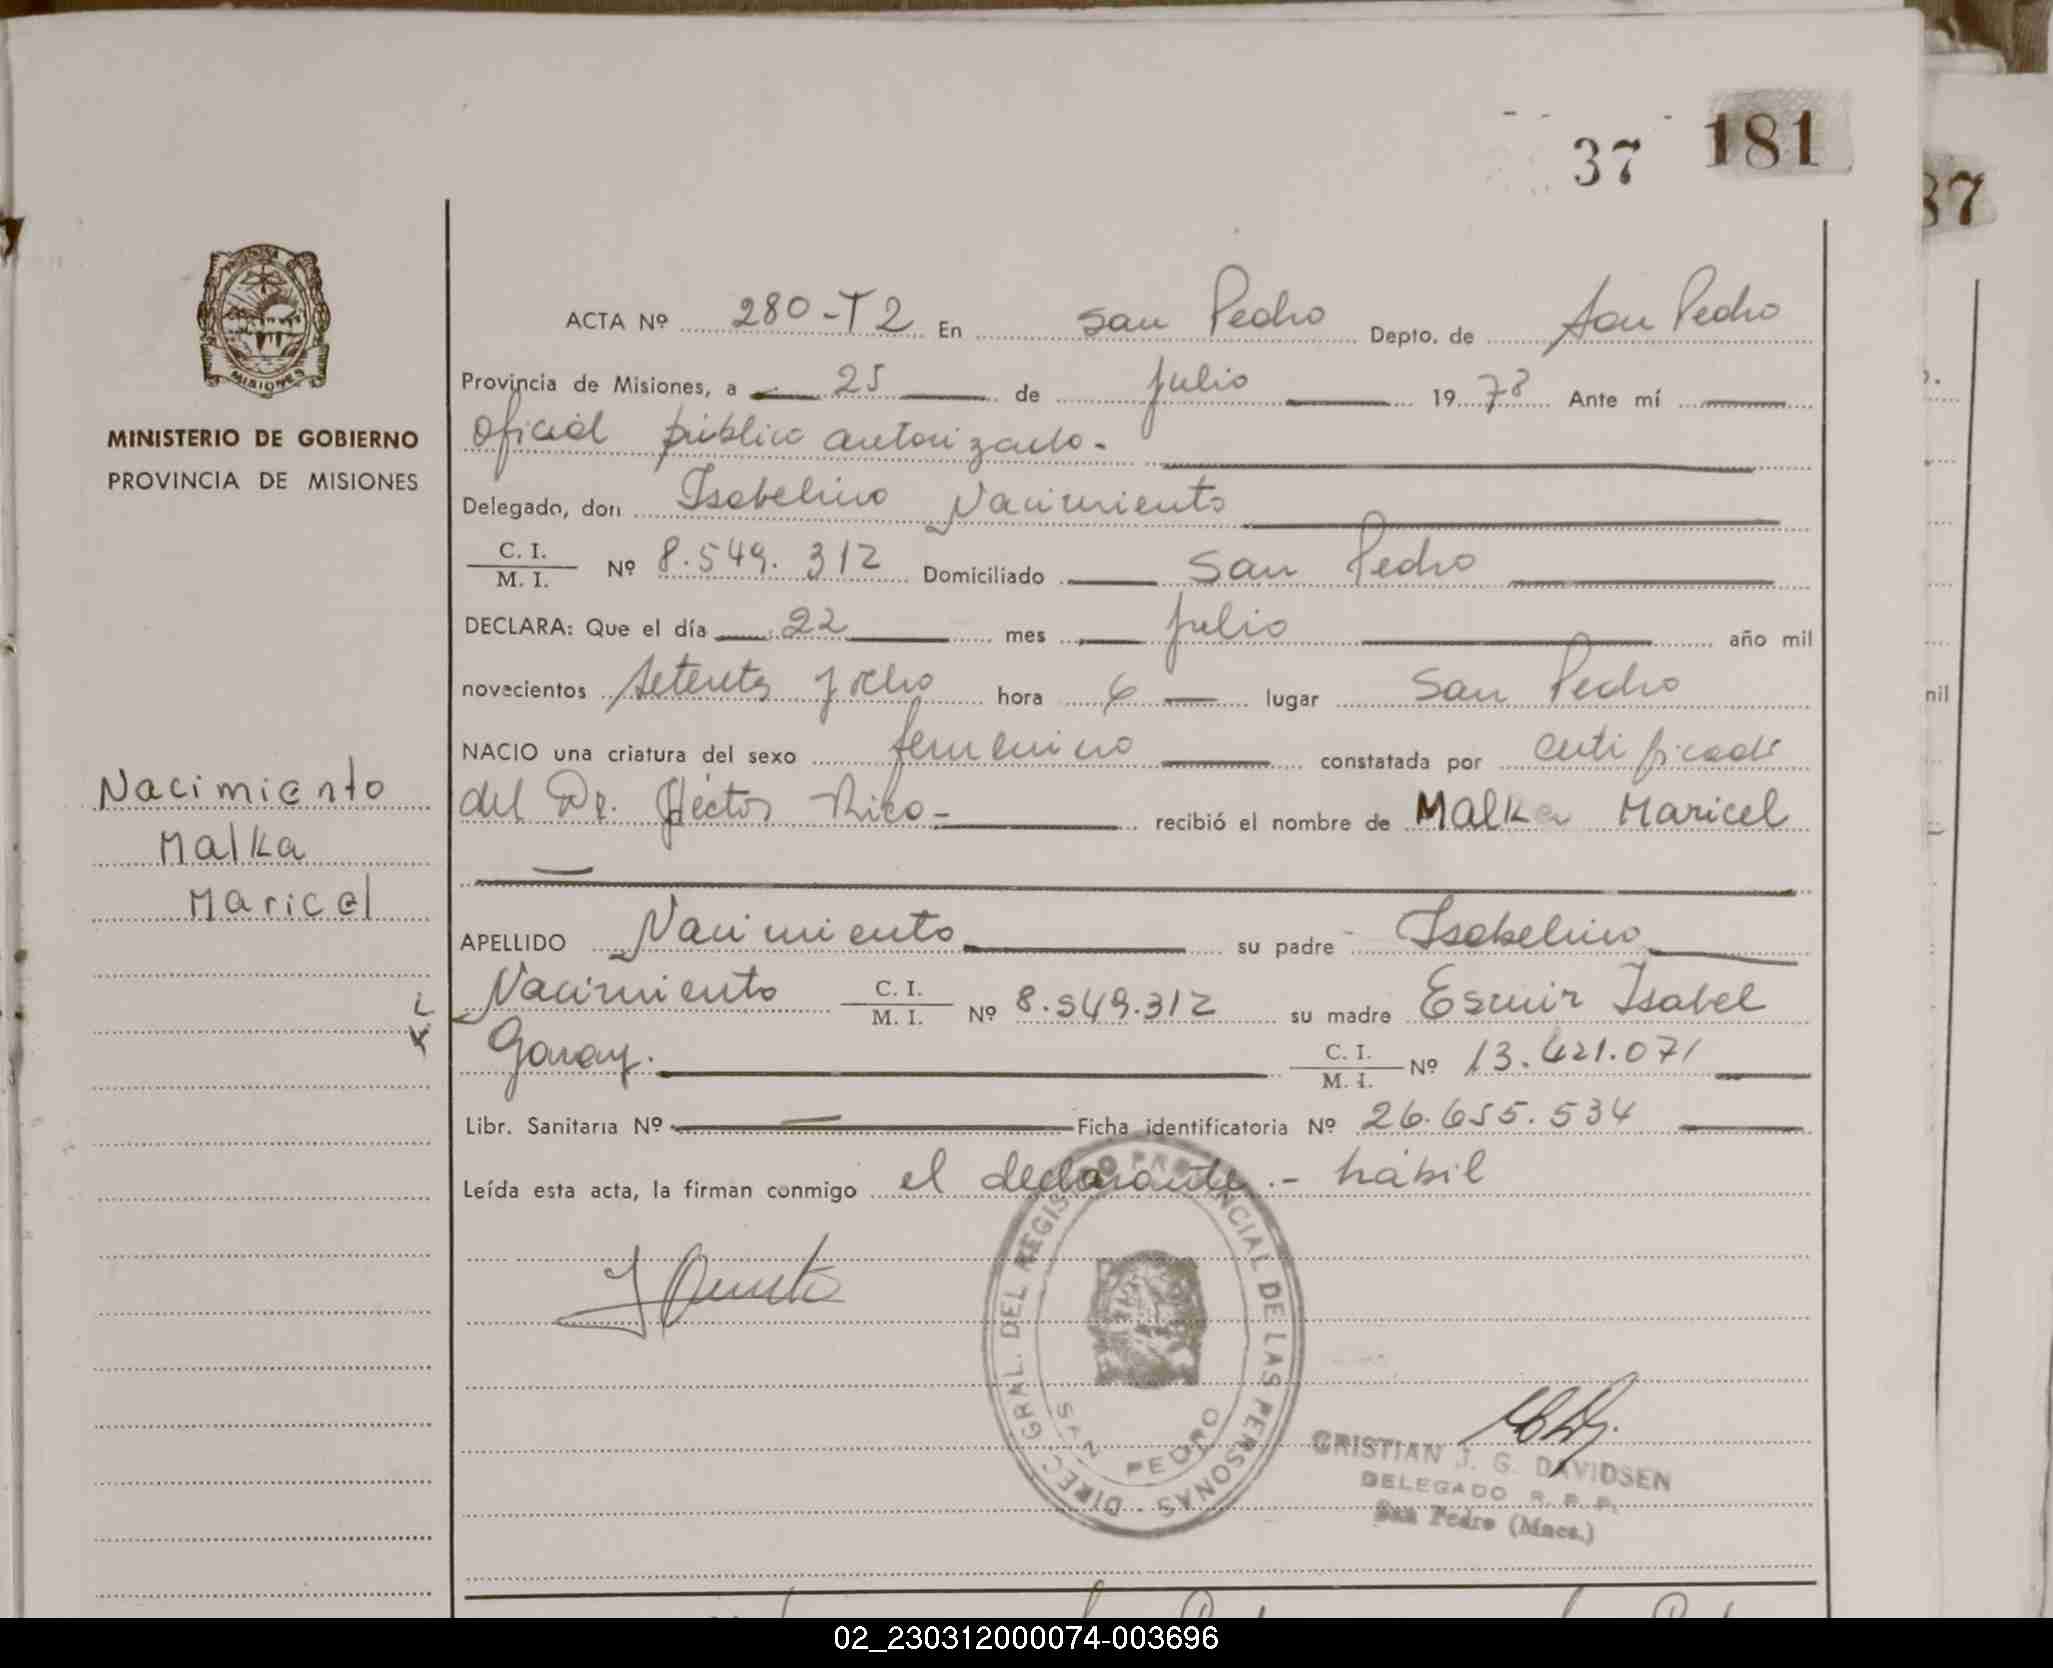 37 181
37
MISIONES
MINISTERIO DE GOBIERNO
PROVINCIA DE MISIONES
Nacimiento
Malka
Maricel
ACTA Nº 280-T2 En San Pedro Depto. de San Pedro
Provincia de Misiones, a 25 de julio 1978 Ante mí
oficial público autorizado.-
Delegado, don Isabelino Nacimiento
C. I.
M. I. Nº 8.549.312 Domiciliado San Pedro
DECLARA: Que el día 22 mes julio año mil
novecientos setenta y ocho hora 6 lugar San Pedro
NACIO una criatura del sexo femenino constatada por certificado
del Dr. Héctor Rico- recibió el nombre de Malka Maricel
APELLIDO Nacimiento su padre Isabelino
Nacimiento C. I.
M. I. Nº 8.549.312 su madre Esmir Isabel
Garay. C. I.
M. I. Nº 13.421.071
Libr. Sanitaria Nº — Ficha identificatoria Nº 26.655.534
Leída esta acta, la firman conmigo el declarante.- hábil
DIRECC. GRAL. DEL REGISTRO PROVINCIAL DE LAS PERSONAS
SAN PEDRO
CRISTIAN J. G. DAVIDSEN
DELEGADO R. P. P.
San Pedro (Mnes.)
nil
02_230312000074-003696